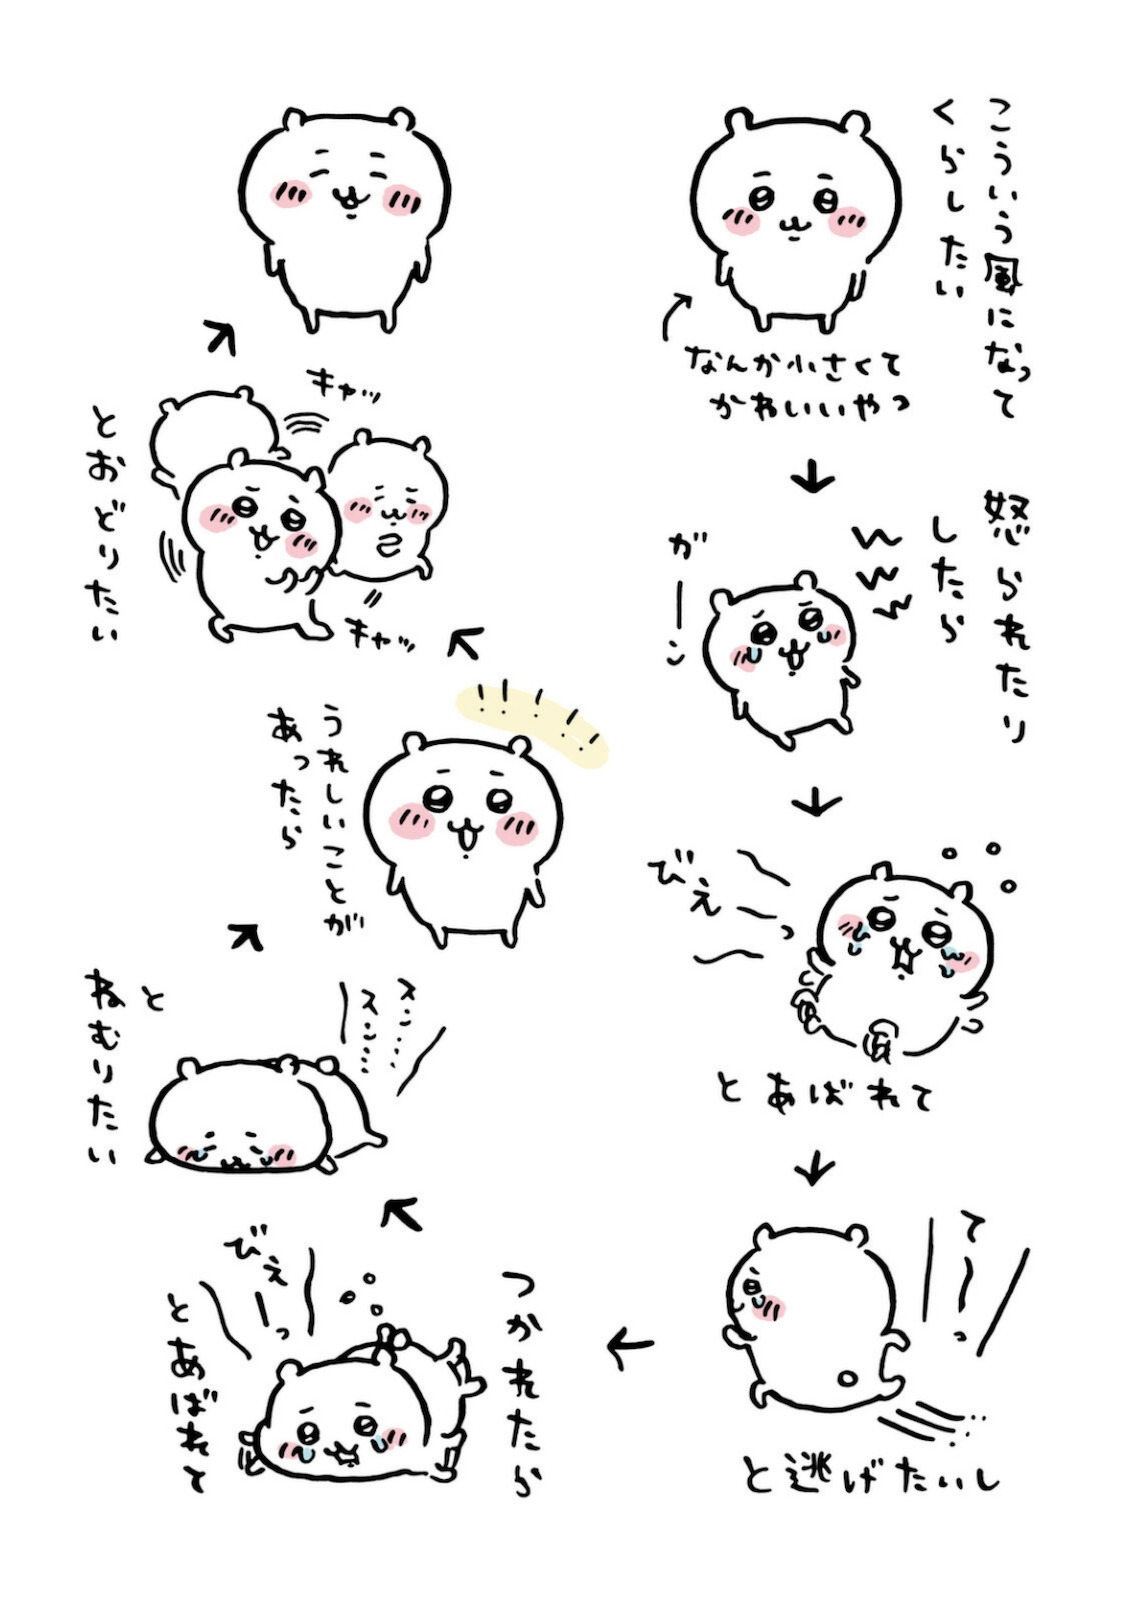 こういう風になって
くらしたい
なんか小さくて
かわいいやつ
怒られたり
したら
がーン
びえーっ
とあばれて
てーっ
と逃げたいし
つかれたら
びえーっ
とあばれて
スン……
スン……
と
ねむりたい
うれしいことが
あったら
!!!!!
キャッ
キャッ
とおどりたい